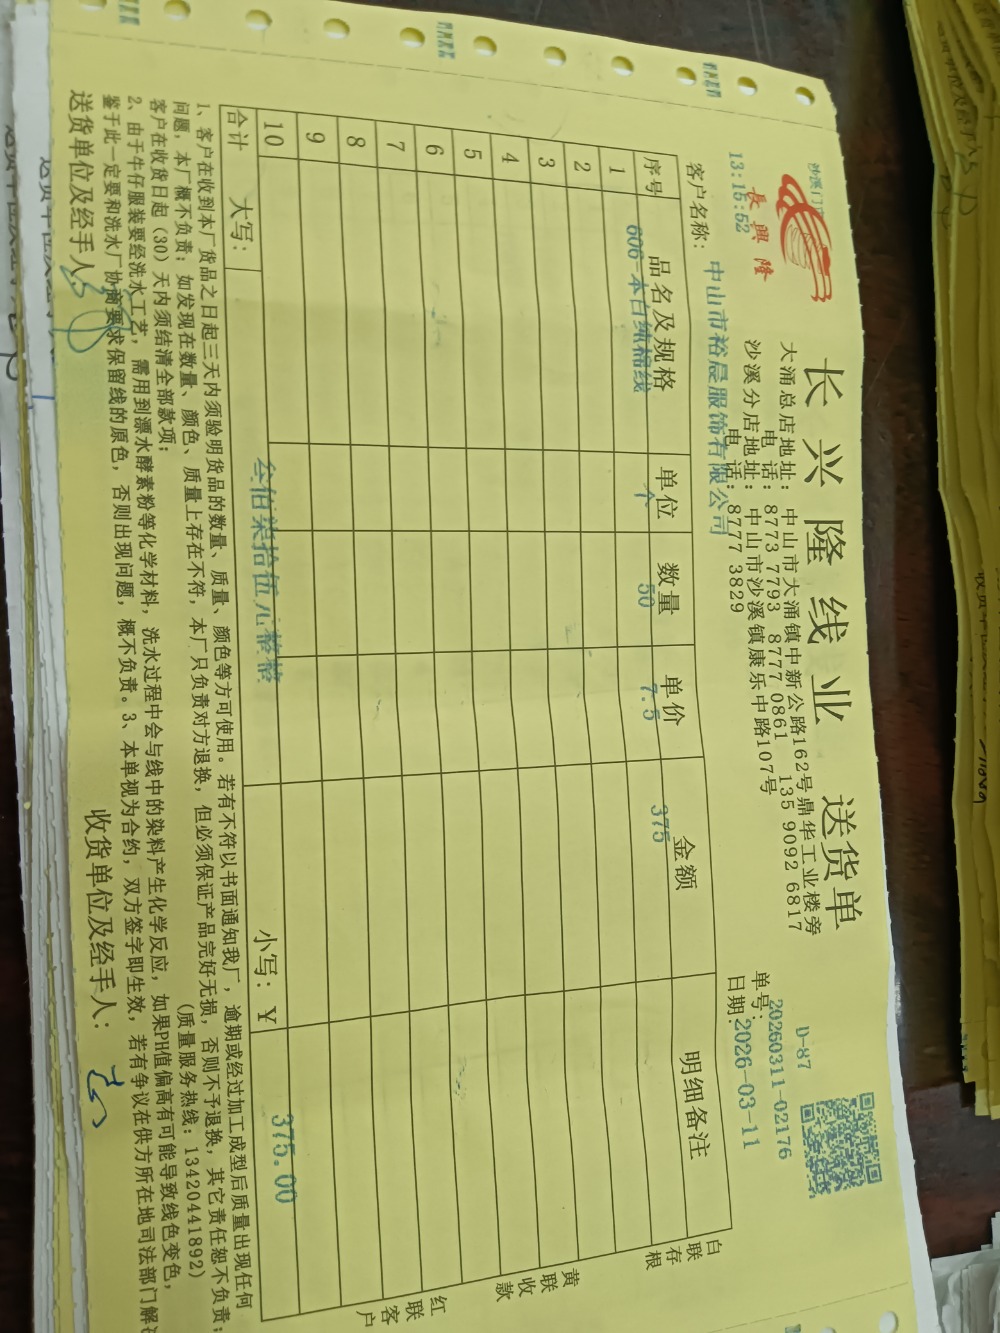 沙溪门
長興隆
13:15:52
长兴隆线业 送货单
大涌总店地址：中山市大涌镇中新公路162号鼎华工业楼旁
电 话：8773 7793 8777 0861 135 9092 6817
沙溪分店地址：中山市沙溪镇康乐中路107号
电 话：8777 3829
D-87
单号：20260311-02176
日期：2026-03-11
客户名称：中山市裕晨服饰有限公司
序号 品名及规格 单位 数量 单价 金额 明细备注
1 606-本白纯棉线 个 50 7.5 375
2
3
4
5
6
7
8
9
10
合计 大写：叁佰柒拾伍元整整 小写：¥ 375.00
白联存根
黄联收款
红联客户
1、客户在收到本厂货品之日起三天内须验明货品的数量、质量、颜色等方可使用。若有不符以书面通知我厂，逾期或经过加工成型后质量出现任何
问题，本厂概不负责；如发现在数量、颜色、质量上存在不符，本厂只负责对方退换，但必须保证产品完好无损，否则不予退换，其它责任恕不负责；
客户在收货日起（30）天内须结清全部款项； （质量服务热线：13420441892）
2、由于牛仔服装要经洗水工艺，需用到漂水酵素粉等化学材料，洗水过程中会与线中的染料产生化学反应，如果PH值偏高有可能导致线色变色，
鉴于此一定要和洗水厂协商要求保留线的原色，否则出现问题，概不负责。3、本单视为合约，双方签字即生效，若有争议在供方所在地司法部门解
送货单位及经手人： 收货单位及经手人：